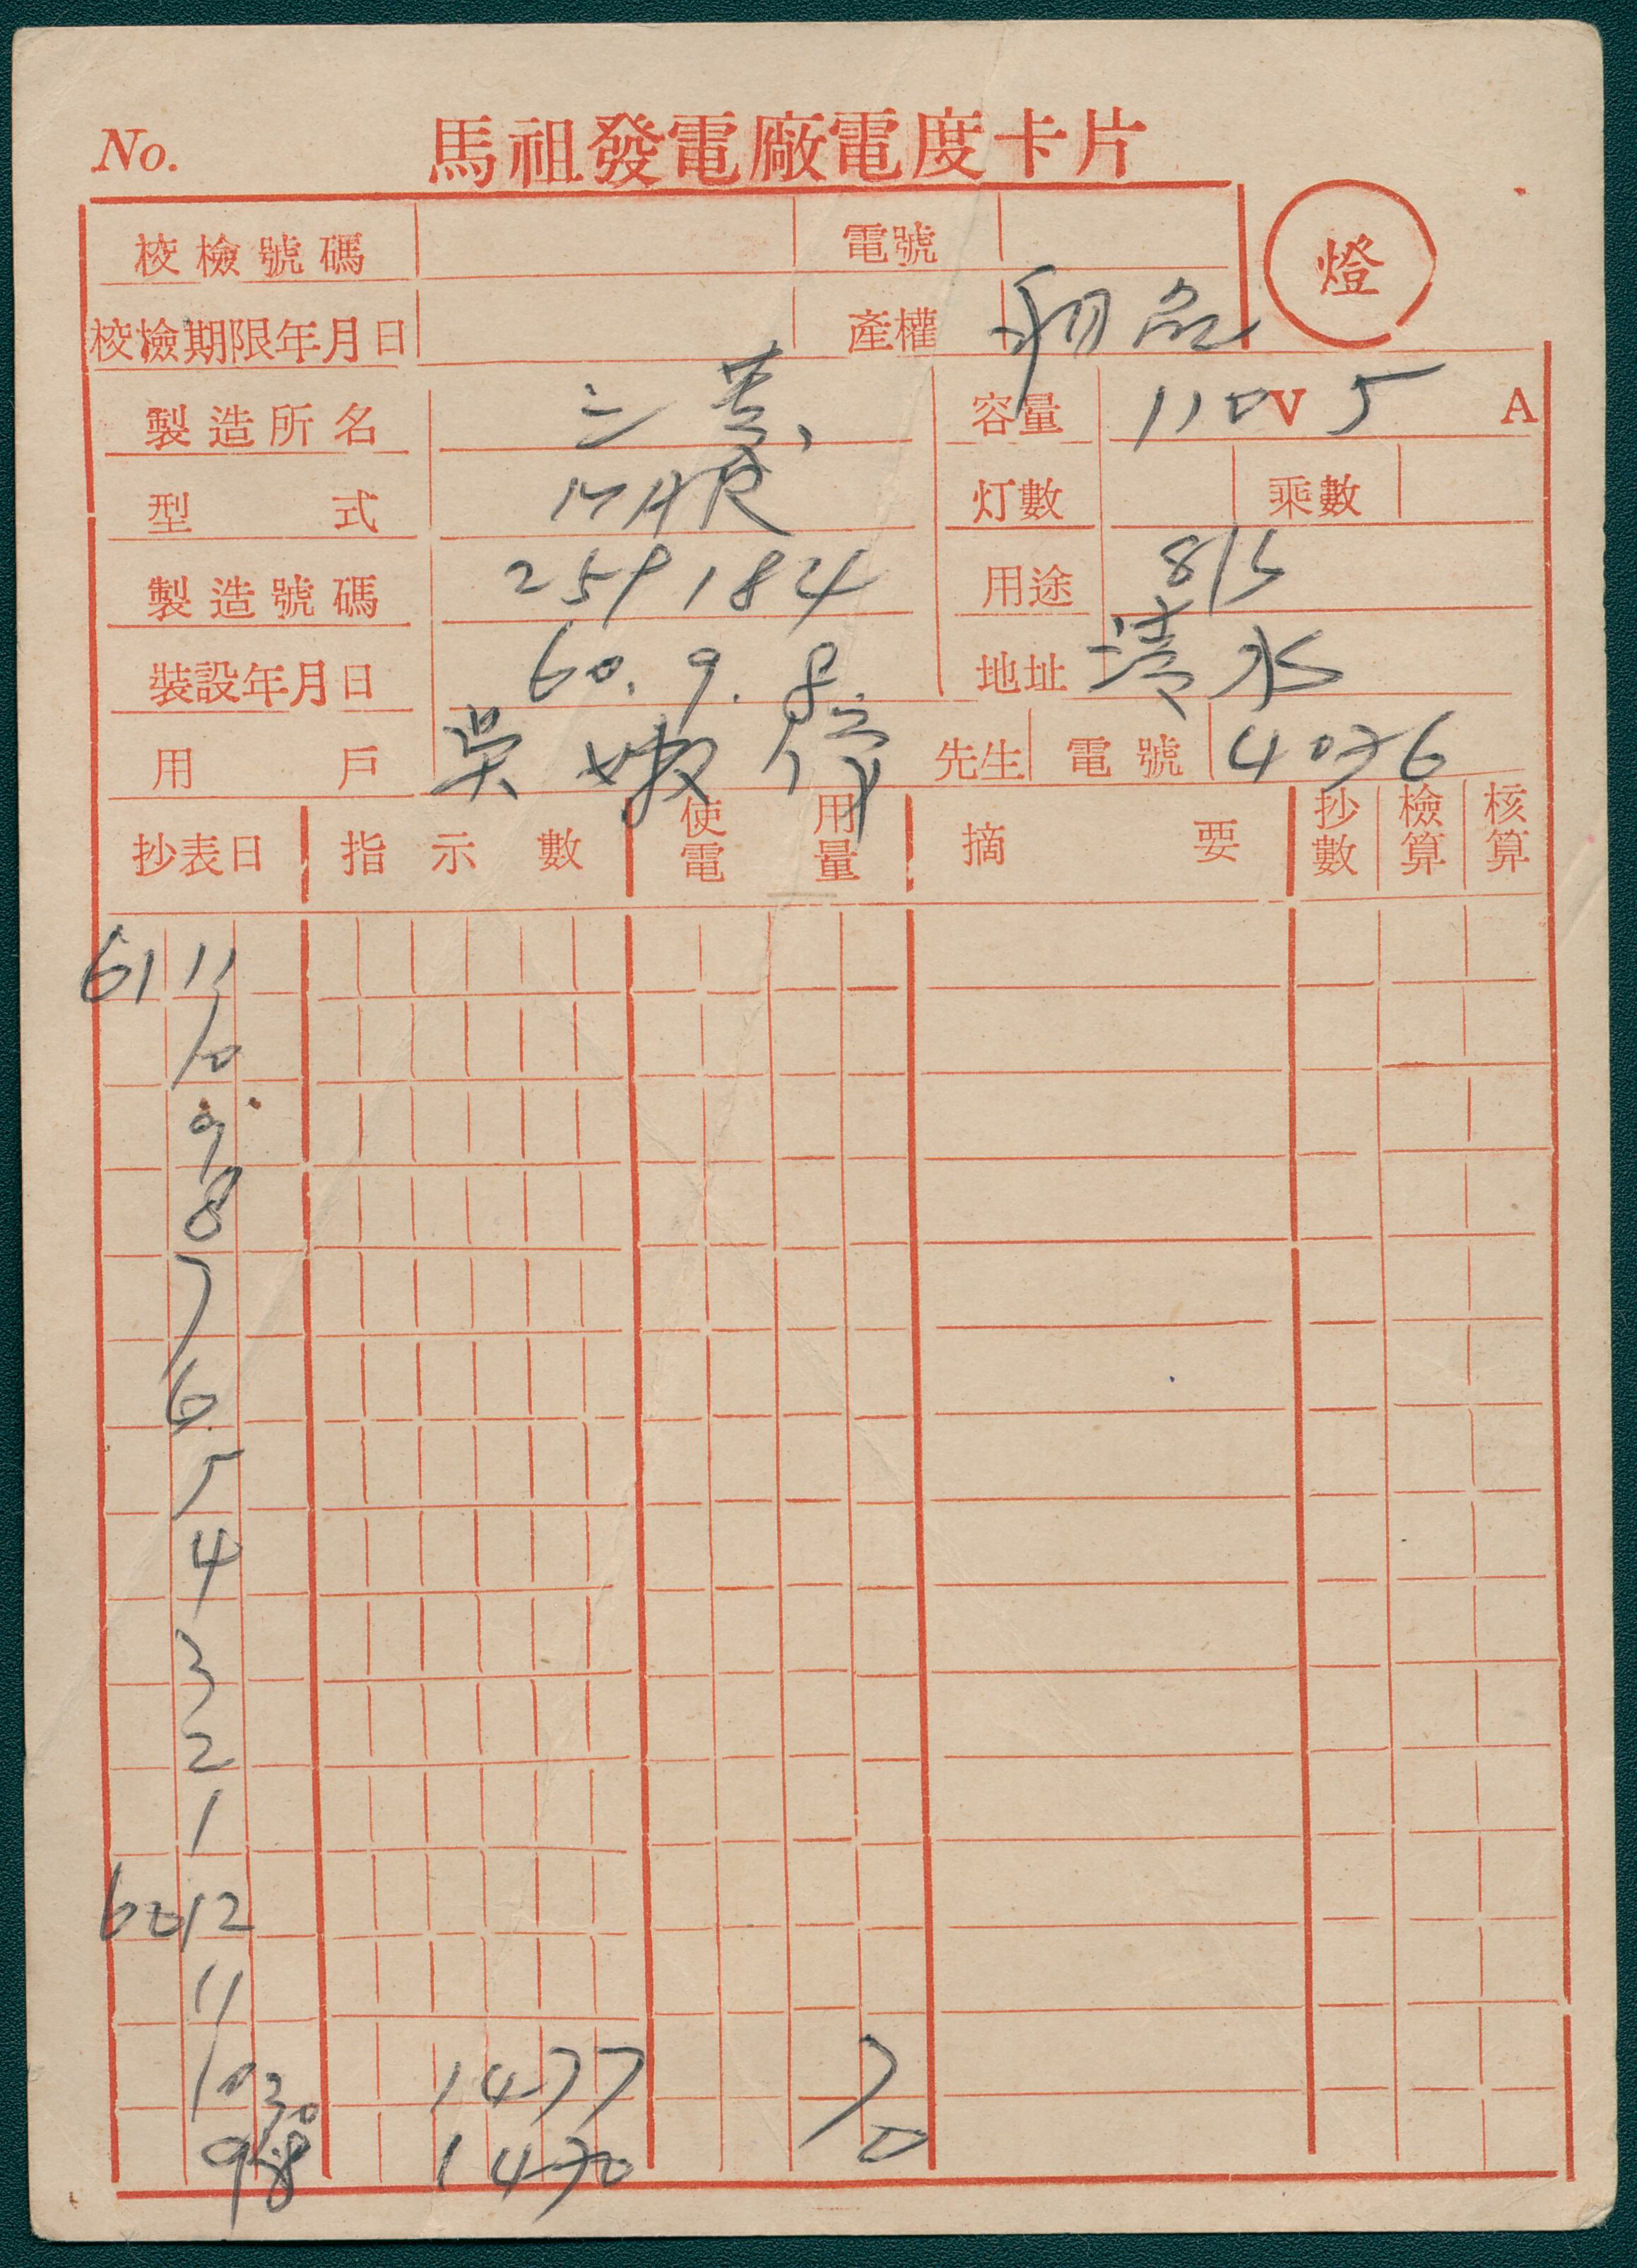 No. 馬祖發電廠電度卡片
校檢號碼 電號 燈
校檢期限年月日 產權 私
製造所名 三菱 容量 110V 5 A
型式 灯數 乘數
製造號碼 259184 用途
裝設年月日 60. 9. 8. 地址 清水
用戶 吳 先生 電號 4076
抄表日 指示數 使用電量 摘要 抄數 檢算 核算
61 11
10
9
8
7
6
5
4
3
2
1
60 12
11
10 30 1477 7
9 8 1470 0